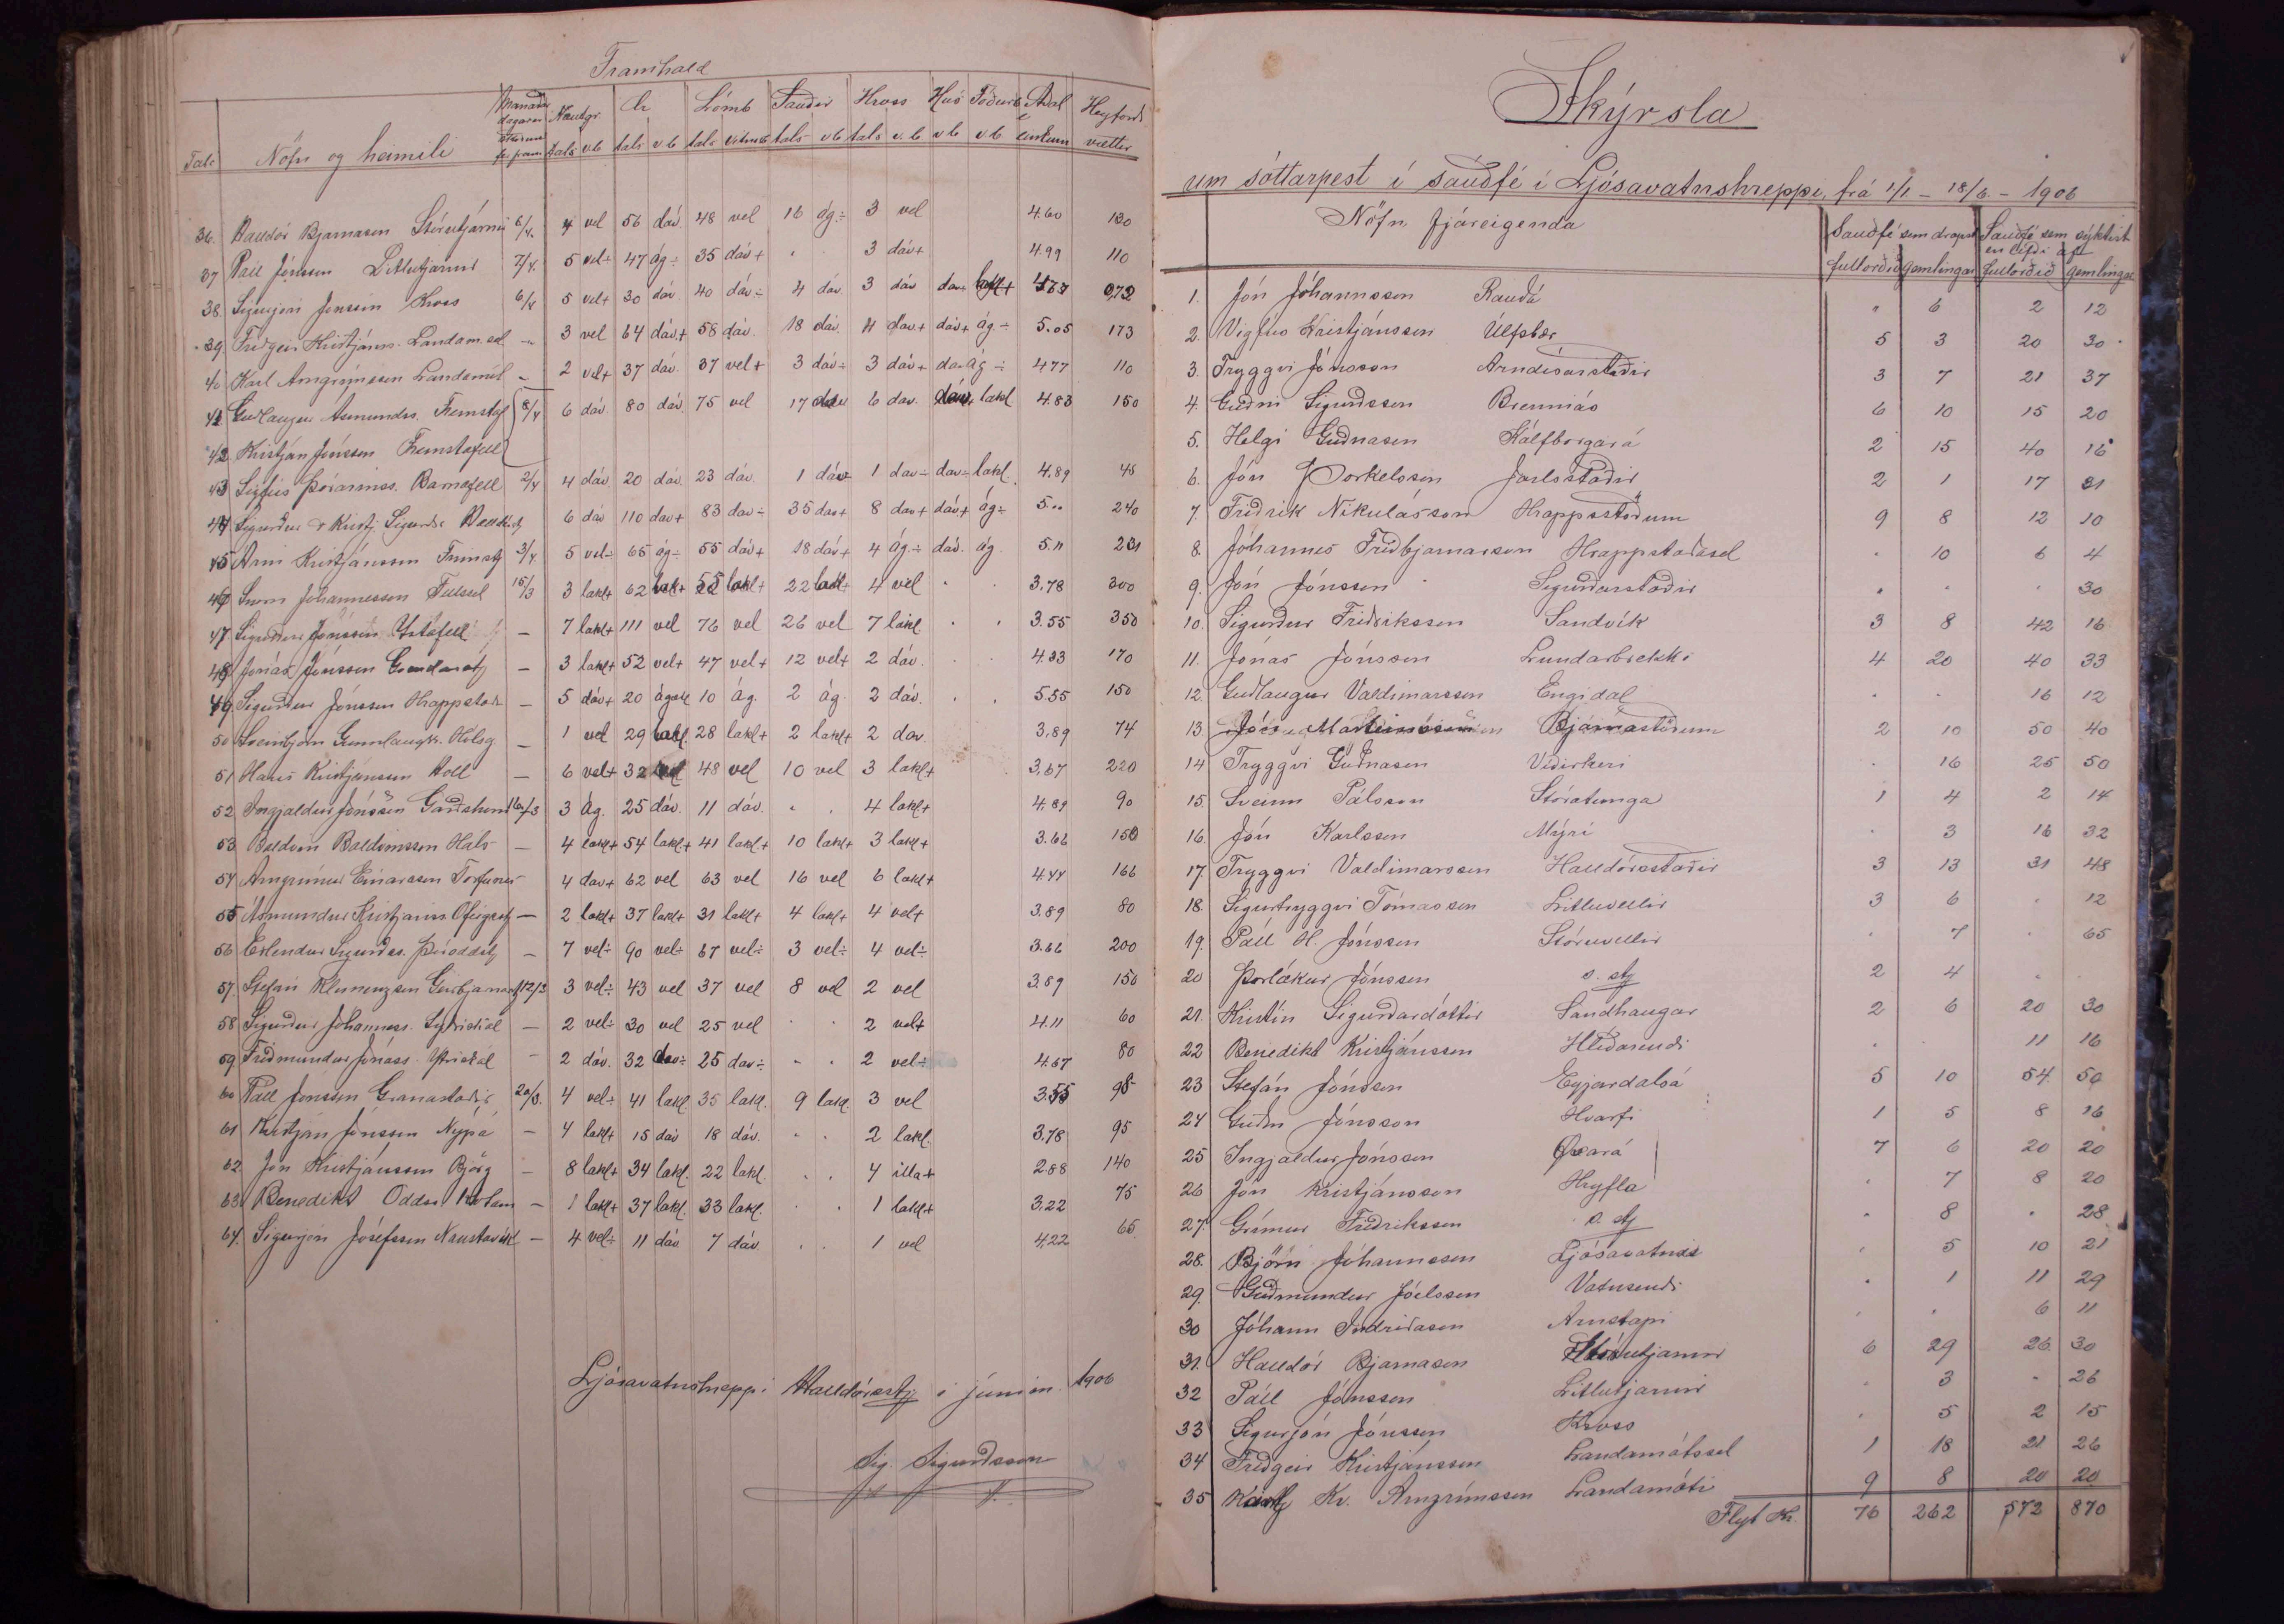 Framhald
Tala Nöfn og heimili Mánaðardagar Nautgr. Ær Lömb Sauðir Hross Hús Töðurb Aðal Heyforði
tals vb tals vb tals vb tals vb tals v.b vb vb einkunn vættir
36. Halldór Bjarnason Stórutjarnir 6/4 4 vel 56 dáv. 48 vel 16 ág÷ 3 vel 4.60 130
37 Páll Jónsson Litlutjarnir 7/4. 5 vel÷ 47 ág÷ 35 dáv+ 3 dáv+ 4.99 110
38. Sigurjón Jónsson Kross 6/4 5 vel+ 30 dáv. 40 dáv÷ 4 dáv. 3 dáv dav÷ lakl+
39 Friðgeir Kristjáns. Landam.sel - 3 vel 64 dáv+ 58 dáv. 18 dáv. 4 dav.+ dáv+ ág÷ 5.05 173
40 Karl Arngrímsson Landamót - 2 vel+ 37 dáv. 37 vel+ 3 dáv÷ 3 dáv+ dav ág÷ 4.77 110
41 Guðlaugur Ásmundss. Fremstaf. 8/4 6 dáv. 80 dáv. 75 vel 17 6 dav. dáv. lakl 4.83 150
42 Kristján Jónsson Fremstafell
43 Sigfús Þórarinss. Barnafell 2/4 4 dáv. 20 dáv. 23 dáv. 1 dáv÷ 1 dav÷ dav÷ lakl. 4.89 45
44 Sigurður & Kristj. Sigurðs 6 dáv 110 dav+ 83 dav÷ 35 dav+ 8 dav+ dáv+ ág÷ 5.00 240
45 Árni Kristjánsson Finnsst. 3/4. 5 vel÷ 65 ág÷ 55 dáv+ 18 dáv+ 4 ág.÷ dáv. ág. 5.11 231
46 Snorri Jóhannesson Fellssel 15/3 3 lakl+ 62 lakl+ 55 lakl+ 22 lakl+ 4 vel 3.78 300
47 Sigurður Jónsson Ystafell - 7 lakl+ 111 vel 76 vel 26 vel 7 lakl 3.55 350
48 Jónas Jónsson - 3 lakl+ 52 vel+ 47 vel+ 12 vel+ 2 dáv. 4.33 170
49 Sigurður Jónsson Hrappstað. - 5 dáv+ 20 ágætl 10 ág. 2 ág. 2 dáv. 5.55 150
50 Sveinbjörn Gunnlaugs. Hólsg. - 1 vel 29 lakl. 28 lakl+ 2 lakl+ 2 dav. 3.89 74
51 Hans Kristjánsson Holt - 6 vel+ 32 48 vel 10 vel 3 lakl+ 3.67 220
52 Ingjaldur Jónsson Garðshorn 16/3 3 ág. 25 dáv. 11 dáv. 4 lakl+ 4.89 90
53 Baldvin Baldvinsson Háls - 4 lakl+ 54 lakl+ 41 lakl+ 10 lakl+ 3 lakl+ 3.66 150
54 Arngrímur Einarsson Torfunes 4 dav+ 62 vel 63 vel 16 vel 6 lakl+ 4.44 166
55 Ásmundur Kristjánss Ófeigsst. - 2 lakl+ 37 lakl+ 31 lakl+ 4 lakl+ 4 vel+ 3.89 80
56 Erlendur Sigurðss. Þóroddst. - 7 vel÷ 90 vel÷ 67 vel÷ 3 vel÷ 4 vel÷ 3.66 200
57. Stefán Klemenzson Geirbjarnarst. 12/3 3 vel÷ 43 vel 37 vel 8 vel 2 vel 3.89 150
58 Sigurður Jóhanness. Syðriskál - 2 vel÷ 30 vel 25 vel 2 vel+ 4.11 60
59 Friðmundur Jónass. Ytriskál - 2 dáv. 32 dav÷ 25 dav÷ 2 vel÷ 4.67 80
60 Páll Jónsson Granastaðir 20/3. 4 vel÷ 41 lakl. 35 lakl. 9 lakl. 3 vel 3.55 98
61 Kristján Jónsson Nýpá - 4 lakl+ 15 dáv 18 dáv. 2 lakl. 3.78 95
62. Jón Kristjánsson Björg - 8 lakl+ 34 lakl. 22 lakl. 4 illa+ 2.88 140
63 Benedikt Oddss. - 1 lakl+ 37 lakl. 33 lakl. 1 lakl+ 3.22 75
64. Sigurjón Jósefsson Naustavík - 4 vel÷ 11 dáv. 7 dáv. 1 vel 4.22 65
Ljósavatnshreppi Halldórsst. í júním. 1906
Sig. Sigurðsson
Skýrsla
um sóttarpest í sauðfé í Ljósavatnshreppi, frá 1/1 - 18/6 - 1906
Nöfn fjáreigenda Sauðfé sem drapst Sauðfé sem sýktist en lifði af
fullorðið gemlingar fullorðið gemlingar
1. Jón Jóhannsson Rauðá " 6 2 12
2. Vigfús Kristjánsson Úlfsbær 5 3 20 30
3. Tryggvi Jónsson Arndísarstaðir 3 7 21 37
4. Guðni Sigurðsson Brenniás 6 10 15 20
5. Helgi Guðnason Kálfborgará 2 15 40 16
6. Jón Þorkelsson Jarlsstaðir 2 1 17 31
7. Friðrik Nikulásson Hrappsstöðum 9 8 12 10
8. Jóhannes Friðbjarnarson Hrappstaðasel " 10 6 4
9. Jón Jónsson Sigurðarstaðir " " " 30
10. Sigurður Friðriksson Sandvík 3 8 42 16
11. Jónas Jónsson Lundarbrekku 4 20 40 33
12. Guðlaugur Valdimarsson Engidal " " 16 12
13. Jón Marteinsson Bjarnastöðum 2 10 50 40
14 Tryggvi Guðnason Víðirkeri " 16 25 50
15. Sveinn Pálsson Stóratunga 1 4 2 14
16. Jón Karlsson Mýri " 3 16 32
17 Tryggvi Valdimarsson Halldórsstaðir 3 13 31 48
18. Sigurtryggvi Tómasson Litluvellir 3 6 " 12
19. Páll H. Jónsson Stóruvellir " 7 " 65
20 Þorlákur Jónsson s. st. 2 4 " "
21. Kristín Sigurðardóttir Sandhaugar 2 6 20 30
22 Benedikt Kristjánsson Hlíðarendi " " 11 16
23 Stefán Jónsson Eyjardalsá 5 10 54 50
24 Guðni Jónsson Hvarfi 1 5 8 16
25 Ingjaldur Jónsson Öxará 7 6 20 20
26 Jón Kristjánsson Hryfla " 7 8 20
27. Grímur Friðriksson s. st. " 8 " 28
28. Björn Jóhannsson Ljósavatni " 5 10 21
29. Guðmundur Jóelsson Vatnsendi " 1 11 29
30 Jóhann Indriðason Arnstapi " " 6 11
31. Halldór Bjarnason Stórutjarnir 6 29 26 30
32 Páll Jónsson Litlutjarnir " 3 " 26
33 Sigurjón Jónsson Kross " 5 2 15
34 Friðgeir Kristjánsson Landamótssel 1 18 21 26
35 Karl Kr. Arngrímsson Landamóti 9 8 20 20
Flyt Kr. 76 262 572 870